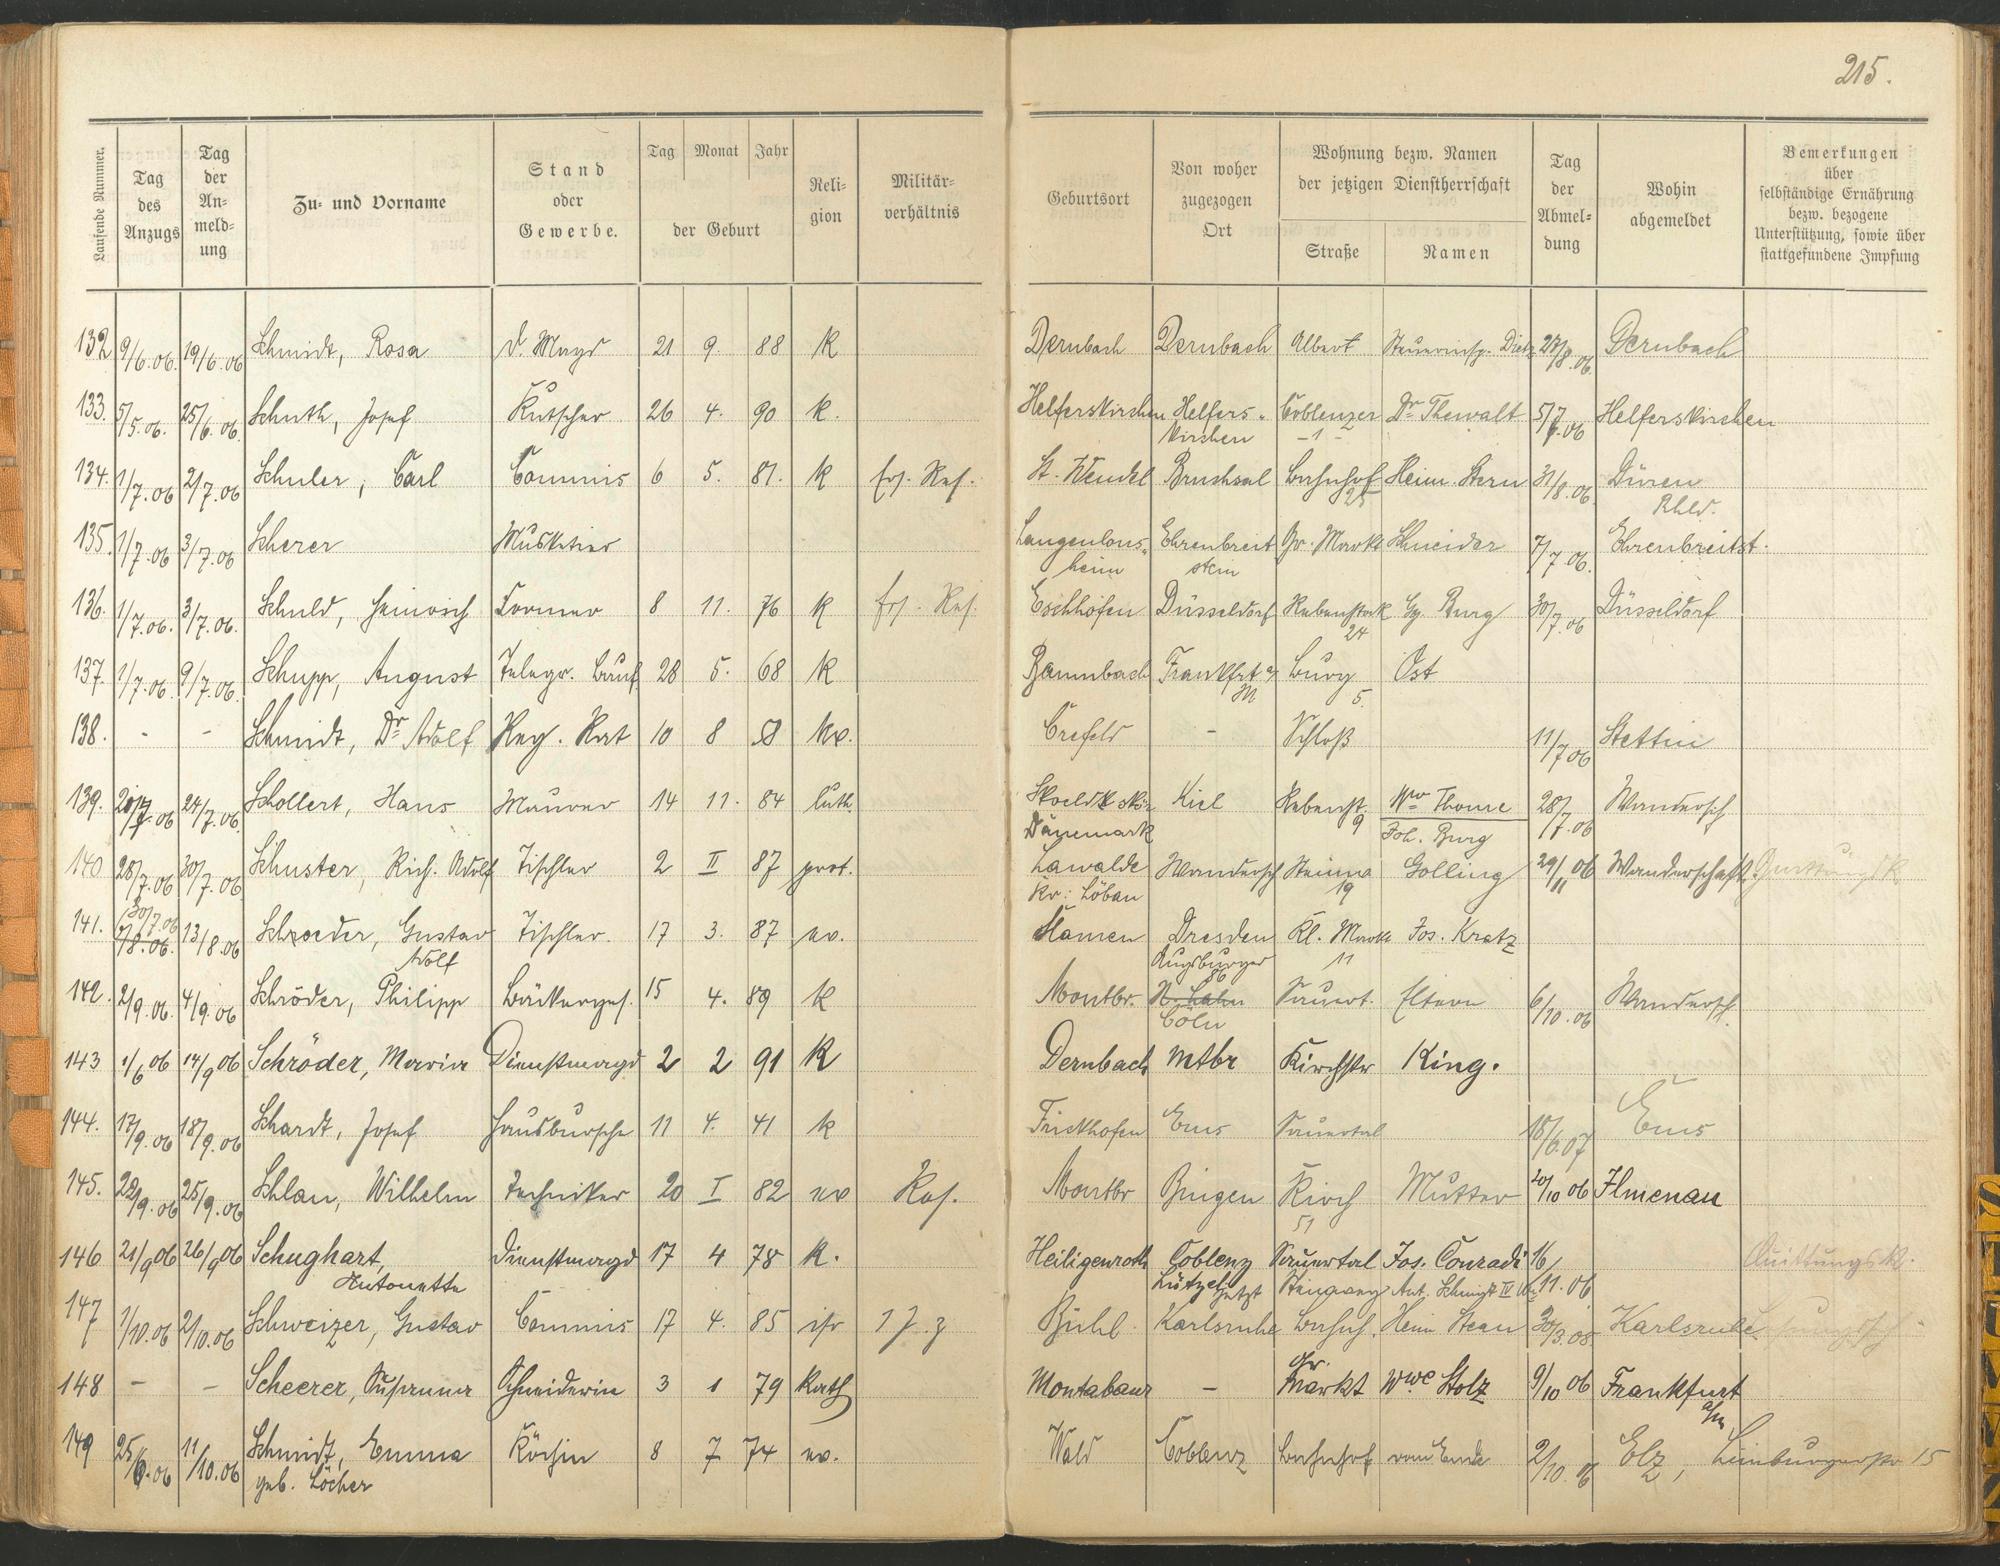 215.
Laufende Nummer.
Tag des Anzugs
Tag der Anmeldung
Zu- und Vorname
Stand oder Gewerbe.
Tag Monat Jahr der Geburt
Religion
Militärverhältnis
Geburtsort
Von woher zugezogen Ort
Wohnung bezw. Namen der jetzigen Dienstherrschaft
Straße Namen
Tag der Abmeldung
Wohin abgemeldet
Bemerkungen über selbständige Ernährung bezw. bezogene Unterstützung, sowie über stattgefundene Impfung
132 9/6.06. 19/6.06 Schmidt, Rosa d. Magd 21 9. 88 K Dernbach Dernbach Albert Steuerinsp. Dietz 27/8.06 Dernbach
133. 5/5.06. 25/6.06. Schuth, Josef Kutscher 26 4. 90 K. Helferskirchen Helfers- Coblenzer Dr Thewalt 5/7.06 Helferskirchen
kirchen -1-
134. 1/7.06 2/7.06 Schuler, Carl Commis 6 5. 81. K Ers. Res. St. Wendel Bruchsal Bahnhof Heim. Stern 31/8.06 Düren
25 Rhld.
135. 1/7.06 3/7.06 Scherer Musketier Langenlons- Ehrenbreit Gr. Markt Schneider 7/7.06. Ehrenbreitst.
heim stein
136. 1/7.06. 3/7.06. Schuld, Heinrich Former 8 11. 76 K Ers. Res. Eschhofen Düsseldorf Rebenstock Gg. Burg 30/7.06 Düsseldorf
24
137. 1/7.06. 9/7.06. Schupp, August Telegr. Bauf 28 5. 68 K Frankfrt a/ Burg Ost
M 5.
138. - - Schmidt, Dr Adolf Reg. Rat 10 8 58 ev. Crefeld - Schloß 11/7 06 Stettin
139. 24/7.06. Schollert, Hans Maurer 14 11. 84 luth. Kiel Rebenst. Wwe Thome 28/7.06 Wandersch
Dänemark 9 Joh. Burg
140 28/7.06 30/7.06. Schuster, Rich. Adolf Tischler 2 II 87 prot. Lawalde Wandersch 19 Golling 29/11 06 Wanderschaft.
Kr: Löbau
141. (30/7.06 7/8.06. 13/8.06 Schroeder, Gustav Tischler. 17 3. 87 ev. Dresden Kl. Markt Jos. Kratz
Adolf Augsburger 86 11
142. 2/9.06. 4/9.06 Schröder, Philipp Bäckerges. 15 4. 89 K Montbr. N. Lahn Sauert. Eltern 6/10.06 Wandersch.
Cöln
143 1/6 06 14/9 06 Schröder, Maria Dienstmagd 2 2 91 K Dernbach Mtbr Kirchstr King.
144. 17/9.06 18/9.06 Schardt, Josef Hausbursche 11 4. 41 K Frickhofen Ems Sauertal 15/6.07 Ems
145. 22/9.06 25/9.06 Schlau, Wilhelm Techniker 20 I 82 ev Res. Montbr Bingen Kirch Mutter 20/10 06 Ilmenau
51
146 21/9 06 26/9 06 Schughart, Dienstmagd 17 4 78 K. Heiligenroth Coblenz Sauertal Jos. Conradi 16/11.06 Quittungsk.
Antonette Lützel jetzt Steinweg Ant. Schmidt IV
147 1/10.06 2/10.06 Schweizer, Gustav Commis 17 4. 85 isr 1 J. z Bühl. Karlsruhe Bahnh. Heim Stern 30/3.08. Karlsruhe
148 - - Scheerer, Susanna Schneiderin 3 1 79 Kath Montabaur - Gr. Markt Wwe Stolz 9/10 06 Frankfurt a/M
149 25/6.06 11/10.06 Schmidt, Emma Köchin 8 7 74 ev. Wald Coblenz Bahnhof vom Ende 2/10.06 Elz, Limburgerstr 15
geb. Löcher